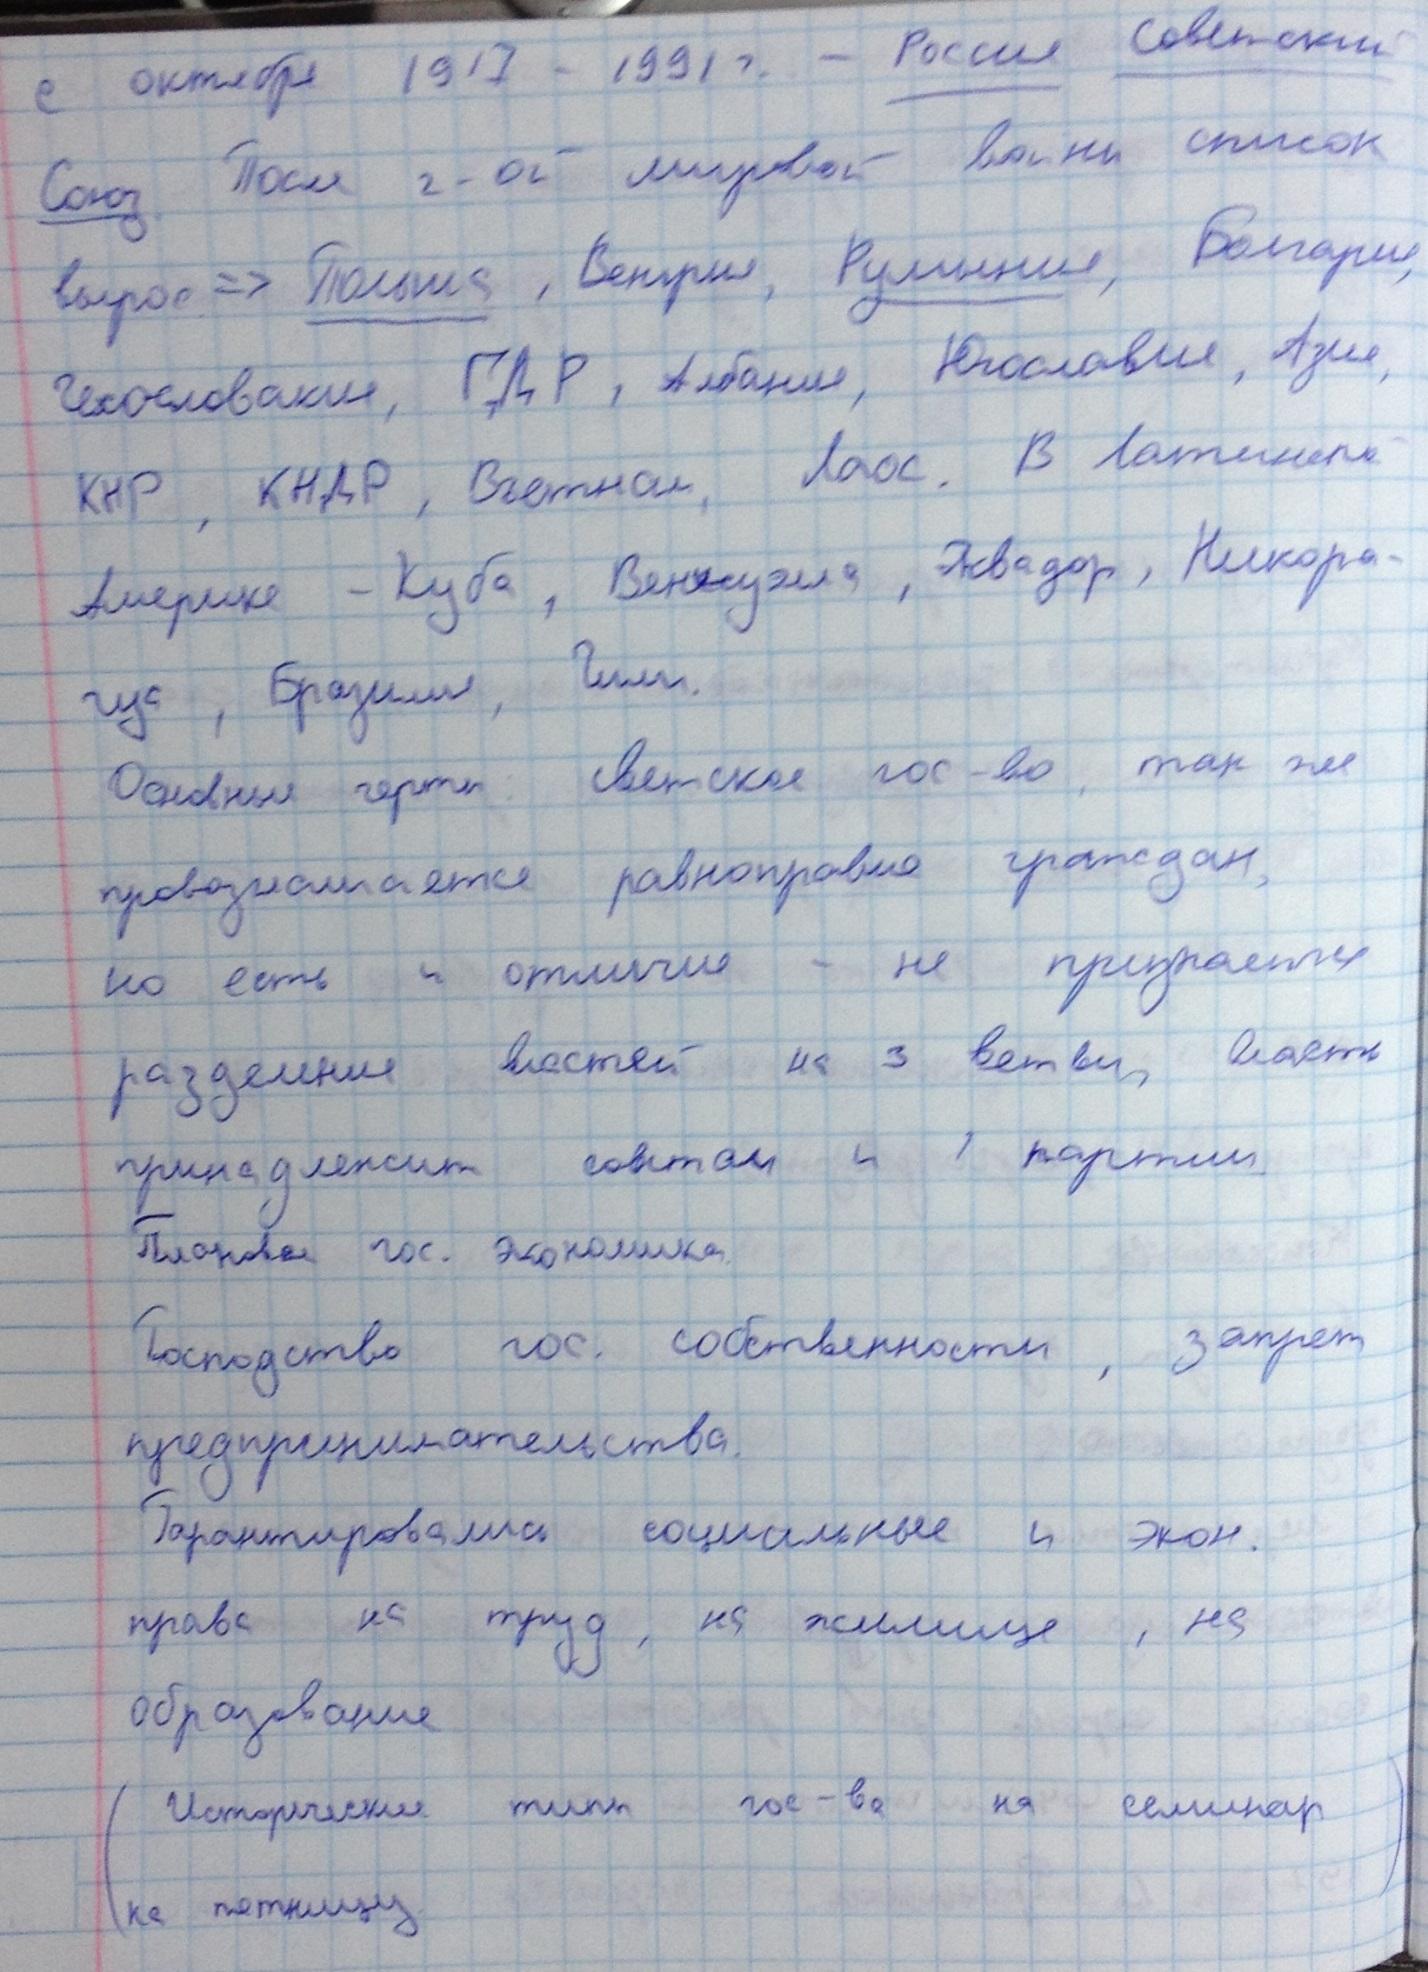 с октября 1917 - 1991 г. - Россия Советский
Союз. После 2-ой мировой войны список
вырос => Польша, Венгрия, Румыния, Болгария,
Чехословакия, ГДР, Албания, Югославия, Азия,
КНР, КНДР, Вьетнам, Лаос. В Латинской
Америке - Куба, Венесуэла, Эквадор, Никора-
гуа, Бразилия, Чили.
Основные черты: светское гос-во, так же
провозглашается равноправие граждан,
но есть и отличие - не признается
разделение властей на 3 ветви, власть
принадлежит советам и 1 партии
Плановая гос. экономика.
Господство гос. собственности, запрет
предпринимательства.
Гарантировались социальные и экон.
права на труд, на жилище, на
образование
(Исторические типы гос-ва на семинар
на пятницу)